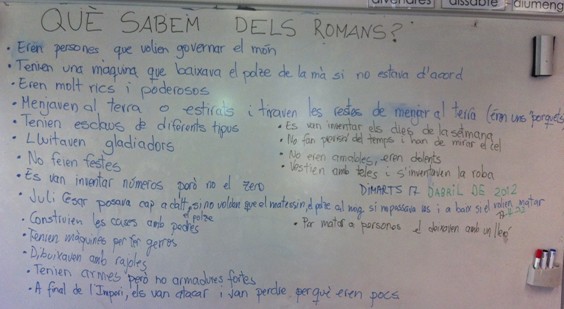 divendres dissabte diumeng
QUÈ SABEM DELS ROMANS?
• Eren persones que volien governar el món
• Tenien una màquina que baixava el polze de la mà si no estava d'acord
• Eren molt rics i poderosos
• Menjaven al terra o estirats i tiraven les restes de menjar al terra (eren uns porquets
• Tenien esclaus de diferents tipus
• Lluitaven gladiadors
• No feien festes
• Es van inventar números però no el zero
• Es van inventar els dies de la setmana
• No fan previsió del temps i han de mirar el cel
• No eren amables, eren dolents
• Vestien amb teles i s'inventaven la roba
DIMARTS 17 D'ABRIL DE 2012
• Juli Cèsar posava cap a dalt, si no volian que el matessin, el polze al mig si i a baix si el volien matar
el polze
• Construïen les cases amb pedres
• Per matar a persones el deixaven amb un lleó
• Tenien màquines per fer gerros
• Dibuixaven amb rajoles
• Tenien armes però no armadures fortes
• A final de l'Imperi, els van atacar i van perdre perquè eren pocs